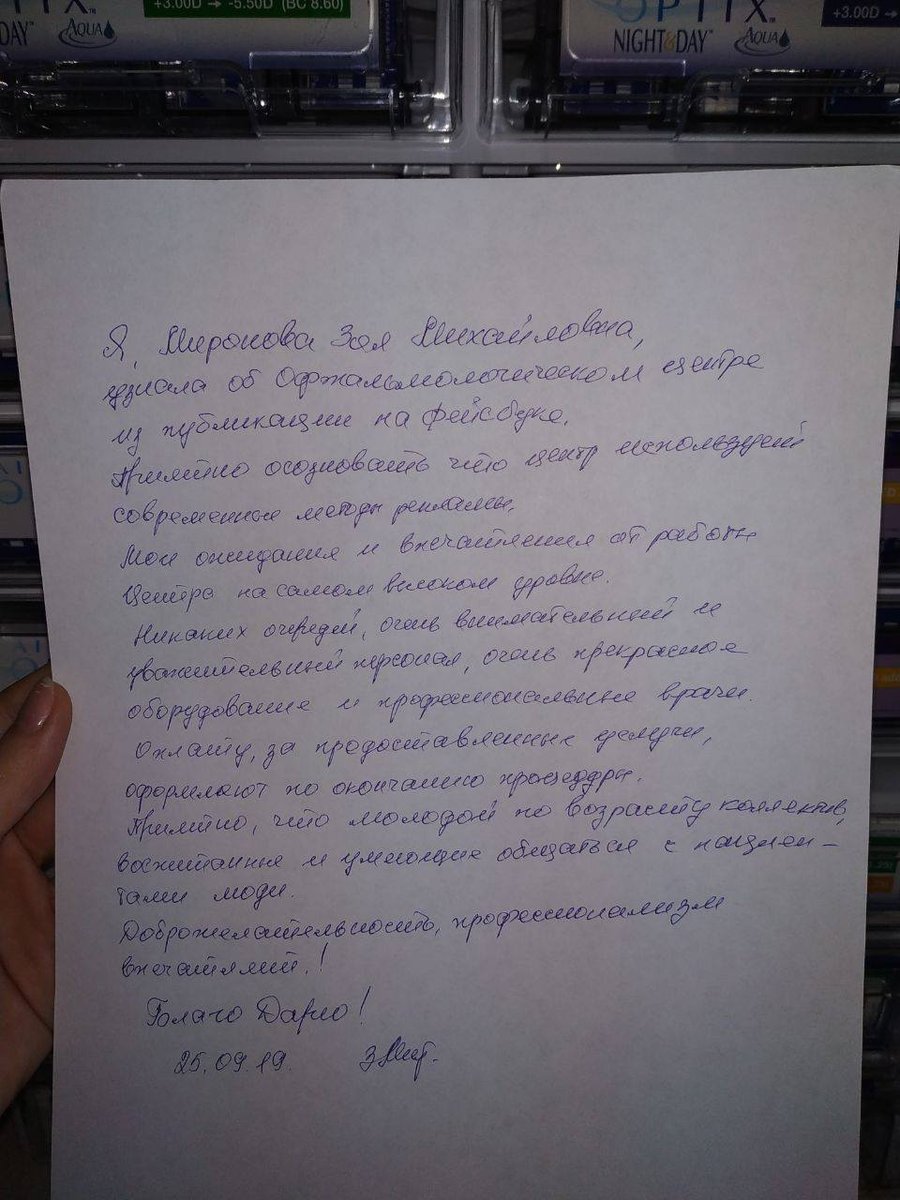 +3.00D → -5.50D (BC 8.60)
DAY™ AQUA
OPTIX™ +3.00D →
NIGHT&DAY™ AQUA
Я, Миронова Зоя Михайловна,
узнала об Офтальмологическом центре
из публикации на Фейсбуке.
Приятно осозновать что центр использует
современные методы рекламы.
Мои ожидания и впечатления от работы
Центра на самом высоком уровне.
Никаких очередей, очень внимательный и
уважительный персонал, очень прекрасное
оборудование и профессиональные врачи.
Оплату, за предоставленные услуги,
оформляют по окончанию процедуры.
Приятно, что молодой по возрасту коллектив,
воспитанные и умеющие общаться с пациен-
тами люди.
Доброжелательность, профессионализм
впечатляют.!
Благо Дарю!
25.09.19. ЗМир.